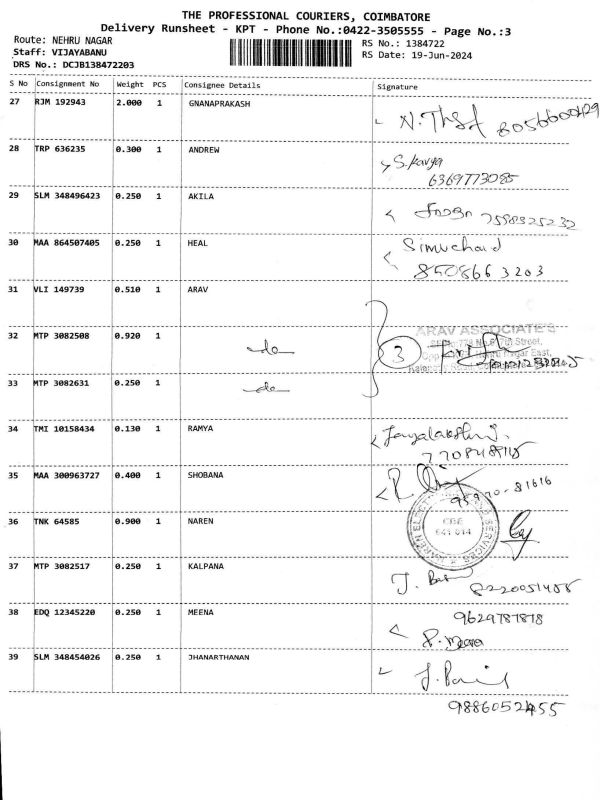 THE PROFESSIONAL COURIERS, COIMBATORE
Delivery Runsheet - KPT - Phone No.:0422-3505555 - Page No.:3
Route: NEHRU NAGAR
Staff: VIJAYABANU
DRS No.: DCJB138472203
RS No.: 1384722
RS Date: 19-Jun-2024
S No Consignment No Weight PCS Consignee Details Signature
27 RJM 192943 2.000 1 GNANAPRAKASH
28 TRP 636235 0.300 1 ANDREW
S. Kavya
6369773085
29 SLM 348496423 0.250 1 AKILA
7598325232
30 MAA 864507405 0.250 1 HEAL
8508663203
31 VLI 149739 0.510 1 ARAV
32 MTP 3082508 0.920 1 do
ARAV ASSOCIATE'S
3
33 MTP 3082631 0.250 1 do
34 TMI 10158434 0.130 1 RAMYA
Jayalakshmi.
35 MAA 300963727 0.400 1 SHOBANA
95970-81616
36 TNK 64585 0.900 1 NAREN
CBE
641 014
37 MTP 3082517 0.250 1 KALPANA
38 EDQ 12345220 0.250 1 MEENA
9629787878
P. Meena
39 SLM 348454026 0.250 1 JHANARTHANAN
9886052455